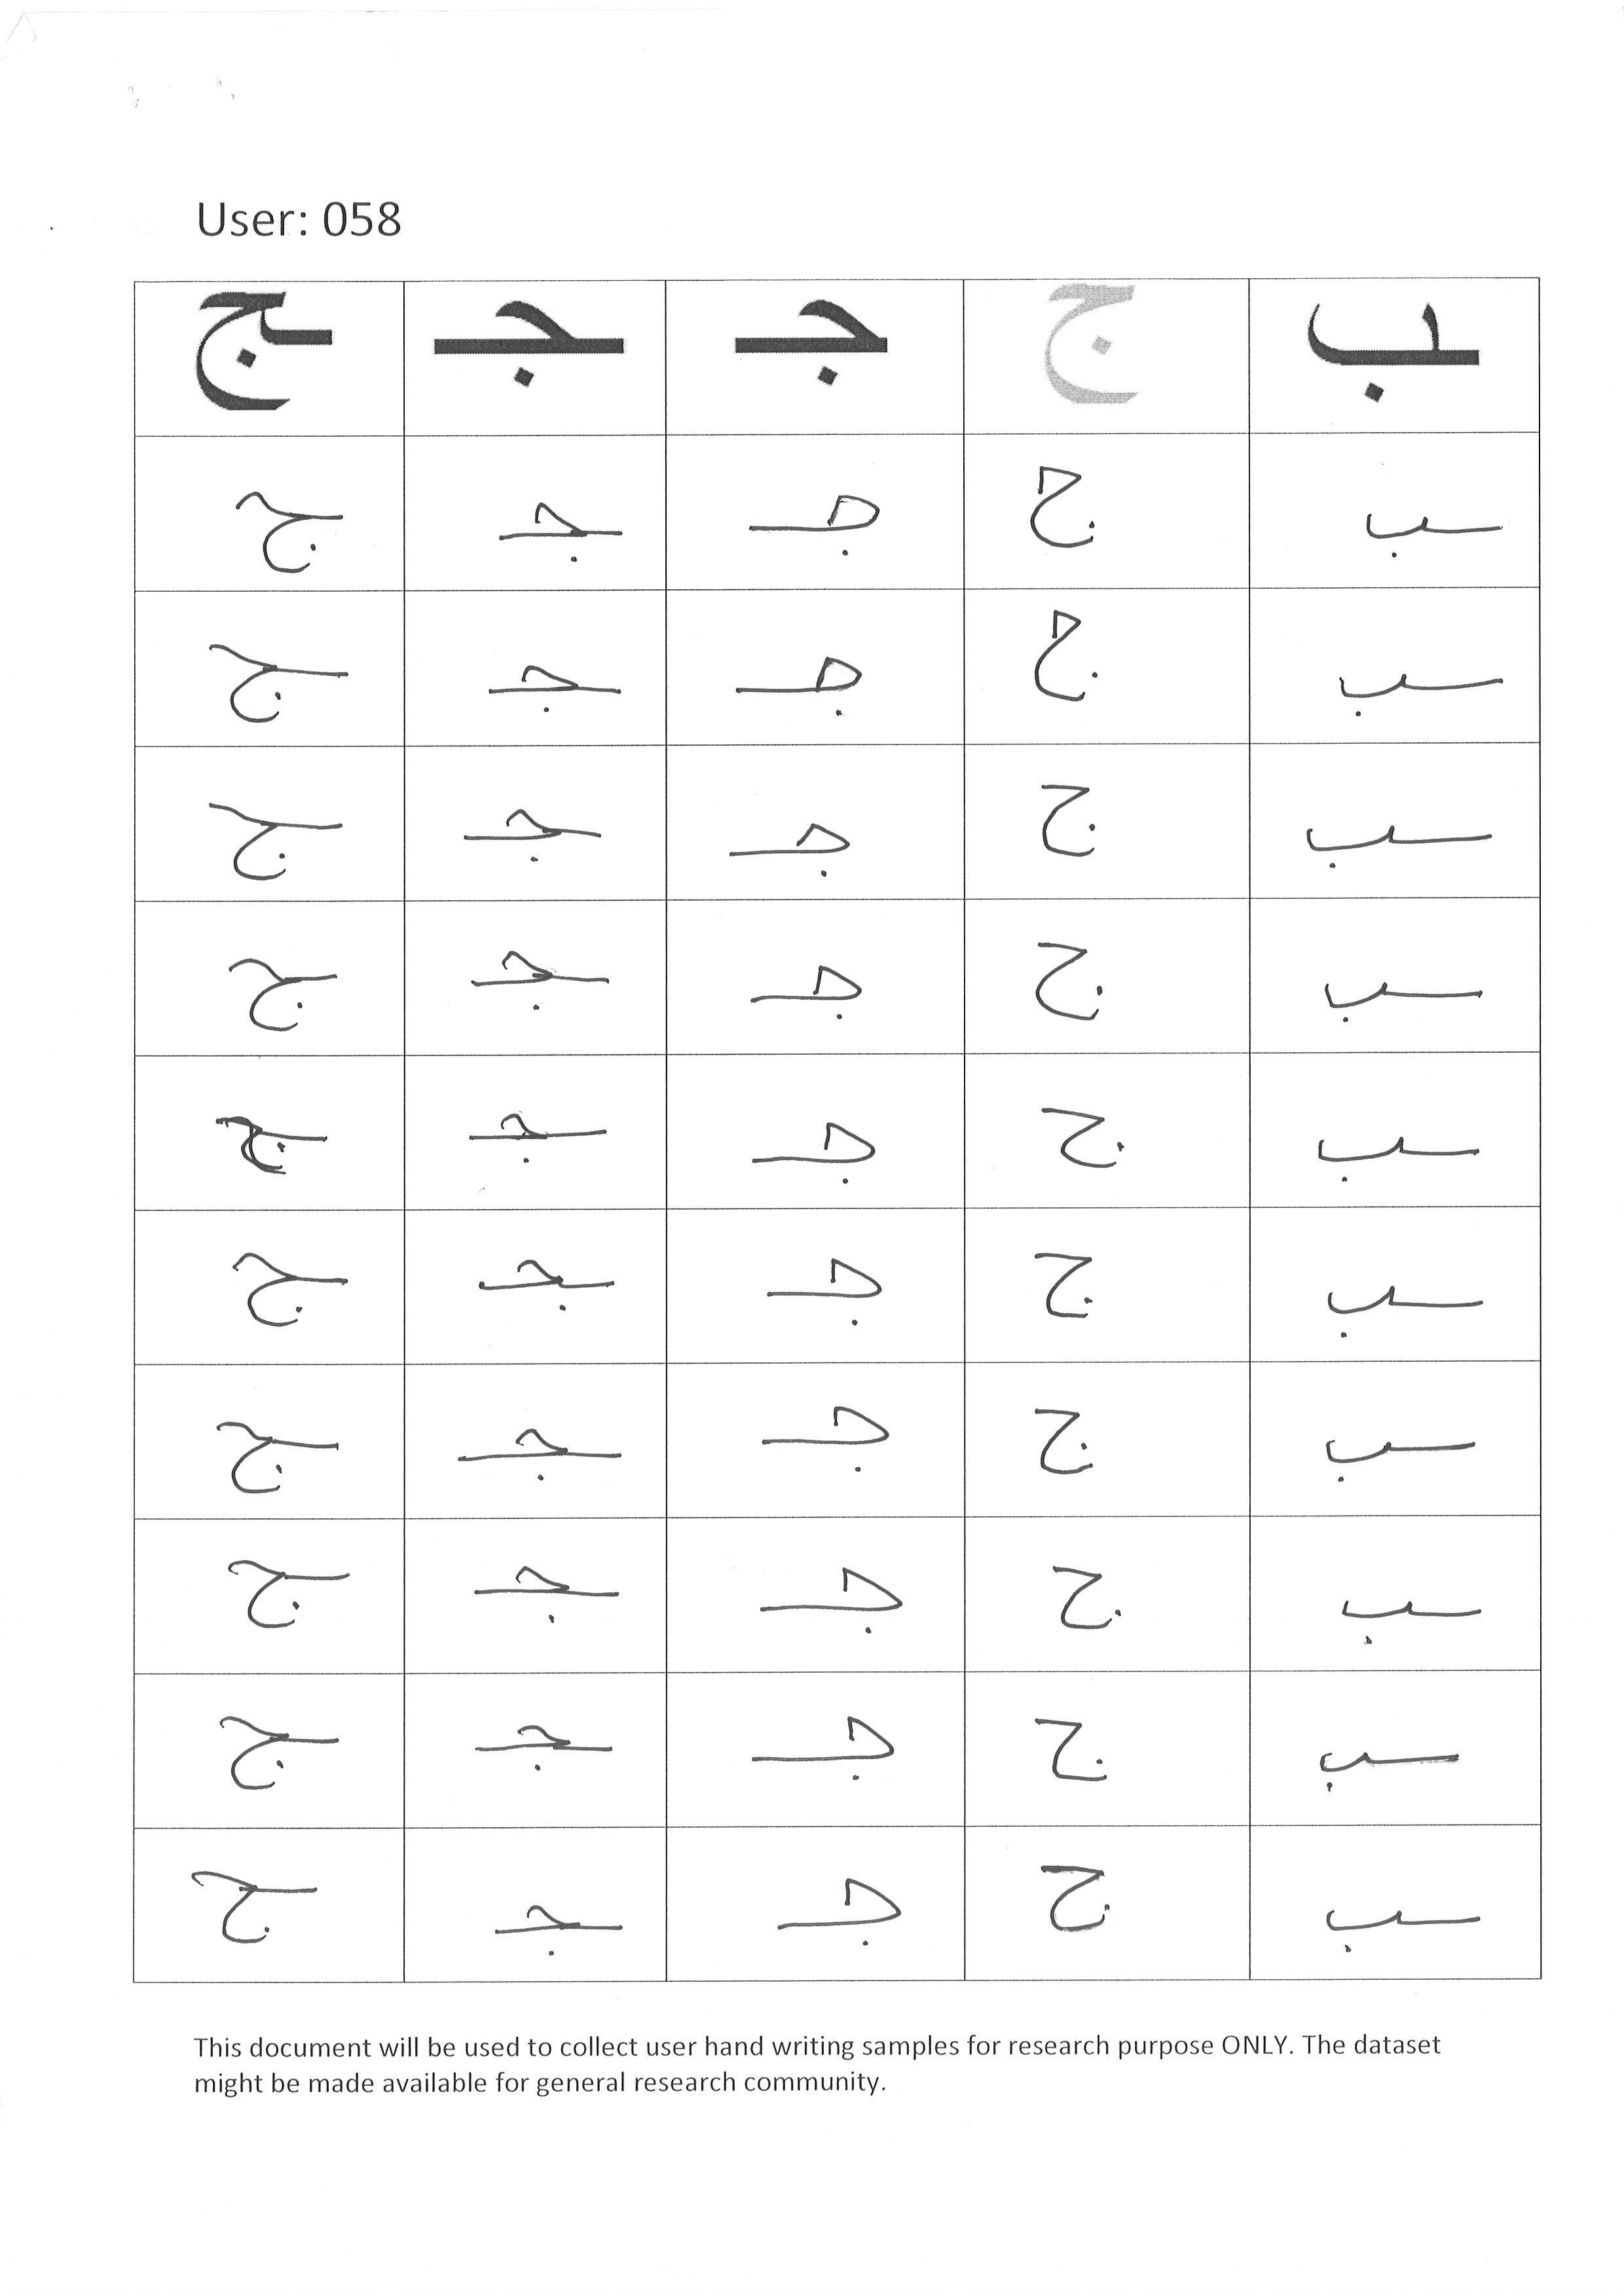 User: 058
ـب ج جـ ـجـ ـج
ـب ج جـ ـجـ ـج
ـب ج جـ ـجـ ـج
ـب ج جـ ـجـ ـج
ـب ج جـ ـجـ ـج
ـب ج جـ ـجـ ـج
ـب ج جـ ـجـ ـج
ـب ج جـ ـجـ ـج
ـب ج جـ ـجـ ـج
ـب ج جـ ـجـ ـج
ـب ج جـ ـجـ ـج
This document will be used to collect user hand writing samples for research purpose ONLY. The dataset
might be made available for general research community.